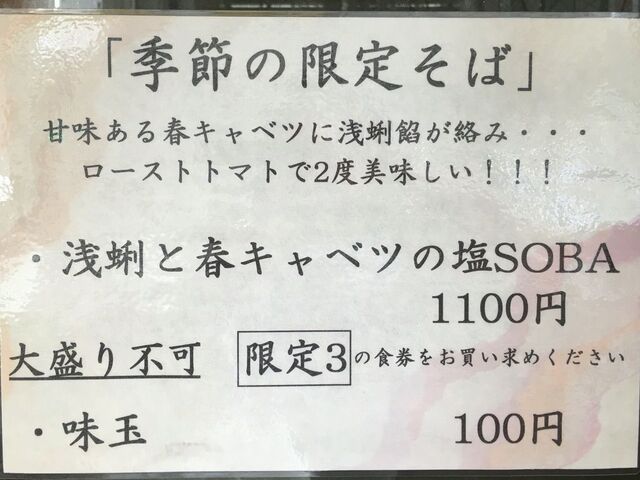 「季節の限定そば」
甘味ある春キャベツに浅蜊餡が絡み・・・
ローストトマトで2度美味しい！！！
・浅蜊と春キャベツの塩SOBA
1100円
大盛り不可 限定3の食券をお買い求めください
・味玉 100円